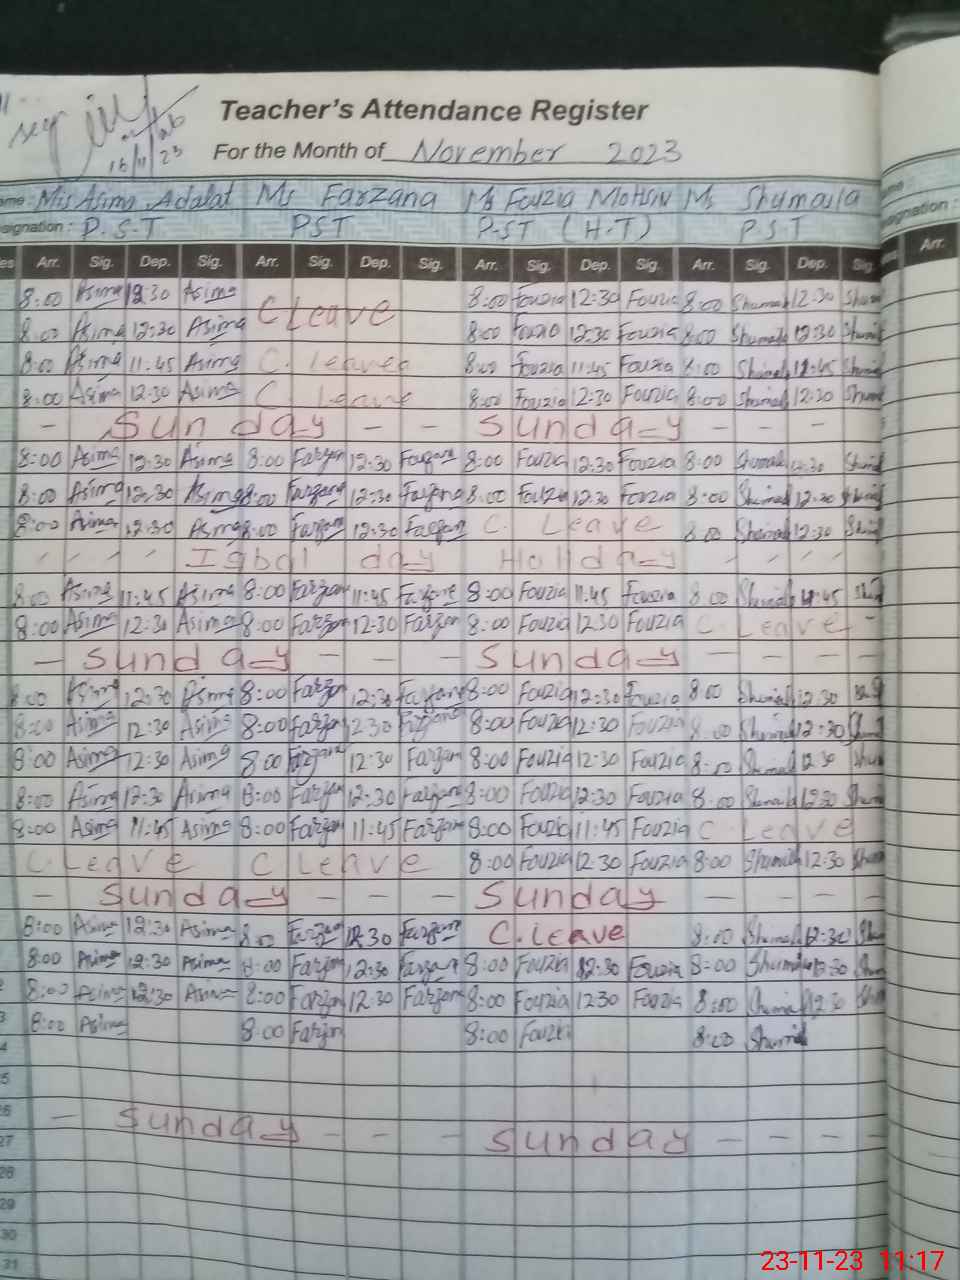 seen
16/11/23
Teacher's Attendance Register
For the Month of November 2023
ame: Mis Asima Adalat Ms Farzana Ms Fouzia Mohsin Ms Shumaila
signation: P.S.T PST P-ST (H.T) P.S.T
es Arr. Sig. Dep. Sig. Arr. Sig. Dep. Sig. Arr. Sig. Dep. Sig. Arr. Sig. Dep. Sig Arr.
8:00 Asima 12:30 Asima C Leave 8:00 Fouzia 12:30 Fouzia 8:00 Shumail 12:30 Shum
8:00 Asima 12:30 Asima 8:00 Fouzia 12:30 Fouzia 8:00 Shumail 12:30 Shum
8:00 Asima 11:45 Asima C. leave 8:00 Fouzia 11:45 Fouzia 8:00 Shumail 11:45 Shum
8:00 Asima 12:30 Asima C. Leave 8:00 Fouzia 12:30 Fouzia 8:00 Shumail 12:30 Shum
- Sunday - - Sunday - - -
8:00 Asima 12:30 Asima 8:00 Farzan 12:30 Farzana 8:00 Fouzia 12:30 Fouzia 8:00 Shumail 12:30 Shum
8:00 Asima 12:30 Asima 8:00 Farzana 12:30 Farzana 8:00 Fouzia 12:30 Fouzia 8:00 Shumail 12:30 Shum
8:00 Asima 12:30 Asima 8:00 Farzan 12:30 Farzan C. Leave 8:00 Shumail 12:30 Shum
Iqbal day Holiday
8:00 Asima 11:45 Asima 8:00 Farzana 11:45 Farzana 8:00 Fouzia 11:45 Fouzia 8:00 Shumail 11:45 Shum
8:00 Asima 12:30 Asima 8:00 Farzan 12:30 Farzan 8:00 Fouzia 12:30 Fouzia C. Leave -
- Sunday - - - Sunday - - - -
8:00 Asima 12:30 Asima 8:00 Farzan 12:30 Farzana 8:00 Fouzia 12:30 Fouzia 8:00 Shumail 12:30
8:00 Asima 12:30 Asima 8:00 Farzan 12:30 Farzana 8:00 Fouzia 12:30 Fouzia 8:00 Shumail 12:30 Shum
8:00 Asima 12:30 Asima 8:00 Farzana 12:30 Farzan 8:00 Fouzia 12:30 Fouzia 8:00 Shumail 12:30 Shum
8:00 Asima 12:30 Asima 8:00 Farzan 12:30 Farzan 8:00 Fouzia 12:30 Fouzia 8:00 Shumail 12:30 Shum
8:00 Asima 11:45 Asima 8:00 Farzan 11:45 Farzan 8:00 Fouzia 11:45 Fouzia C Leave
C Leave C Leave 8:00 Fouzia 12:30 Fouzia 8:00 Shumail 12:30 Shum
- Sunday - - - Sunday - - -
8:00 Asima 12:30 Asima 8:00 Farzana 12:30 Farzana C.leave 8:00 Shumail 12:30 Shum
8:00 Asima 12:30 Asima 8:00 Farzan 12:30 Farzan 8:00 Fouzia 12:30 Fouzia 8:00 Shumaila 12:30 Shum
8:00 Asima 12:30 Asima 8:00 Farzan 12:30 Farzan 8:00 Fouzia 12:30 Fouzia 8:00 Shumail 12:30 Shum
3 8:00 Asima 8:00 Farzan 8:00 Fouzi 8:00 Shumail
4
5
6 - Sunday - - - Sunday - - - -
27
28
29
30
31
23-11-23 11:17